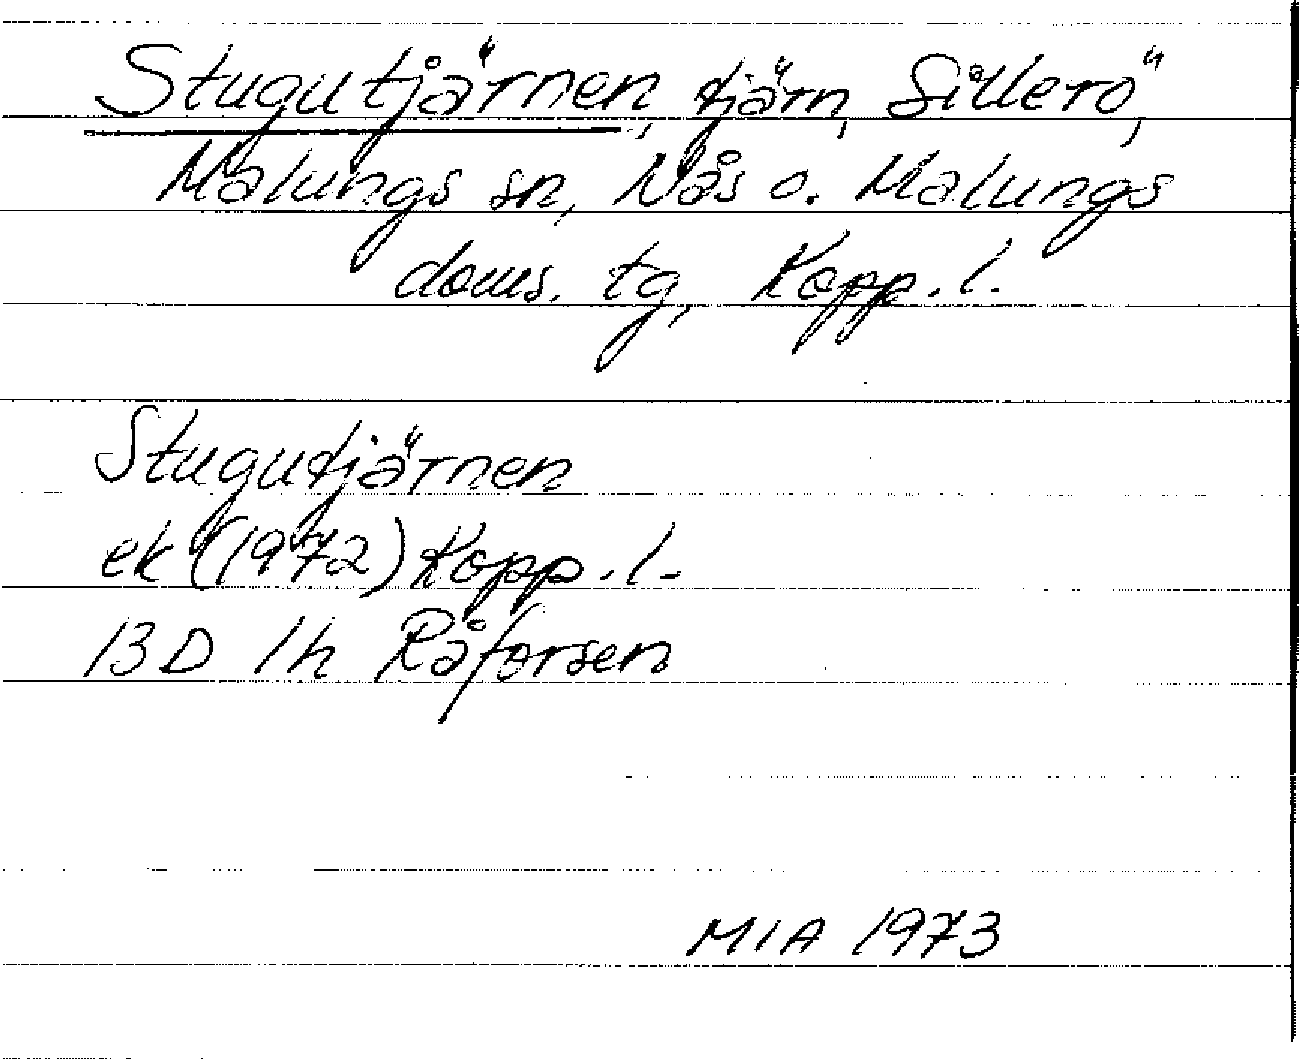 Stugutjärnen, tjärn, Sillerö,
Malungs sn, Nås o. Malungs
doms. tg, Kopp. l.
Stugutjärnen
ek (1972) Kopp. l.
13 D 1h Råforsen
MIA 1973